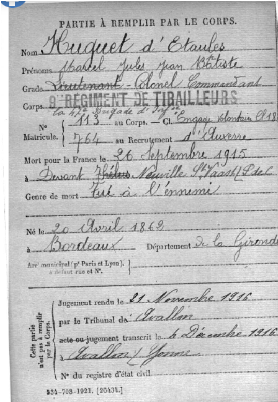 PARTIE À REMPLIR PAR LE CORPS.
Nom Huguet d'Etaules
Prénoms Marcel Jules Jean Batiste
Grade Lieutenant-Colonel Commandant
Corps 8e REGIMENT DE TIRAILLEURS
la Brigade d'Inf
N° 113 au Corps. Cl. Engagé volontaire
Matricule. 764 au Recrutement d'Auxerre
Mort pour la France le 26 Septembre 1915
à Devant Neuville St Vaast
Genre de mort Tué à l'ennemi
Né le 20 Avril 1862
à Bordeaux Département de la Gironde
Arrt municipal (pr Paris et Lyon),
à défaut rue et N°.
Cette partie n'est pas à remplir par le Corps.
Jugement rendu le 21 Novembre 1916
par le Tribunal de Avallon
acte ou jugement transcrit le 6 Décembre 1916
à Avallon (Yonne)
N° du registre d'état civil
534-708-1921. [26434.]